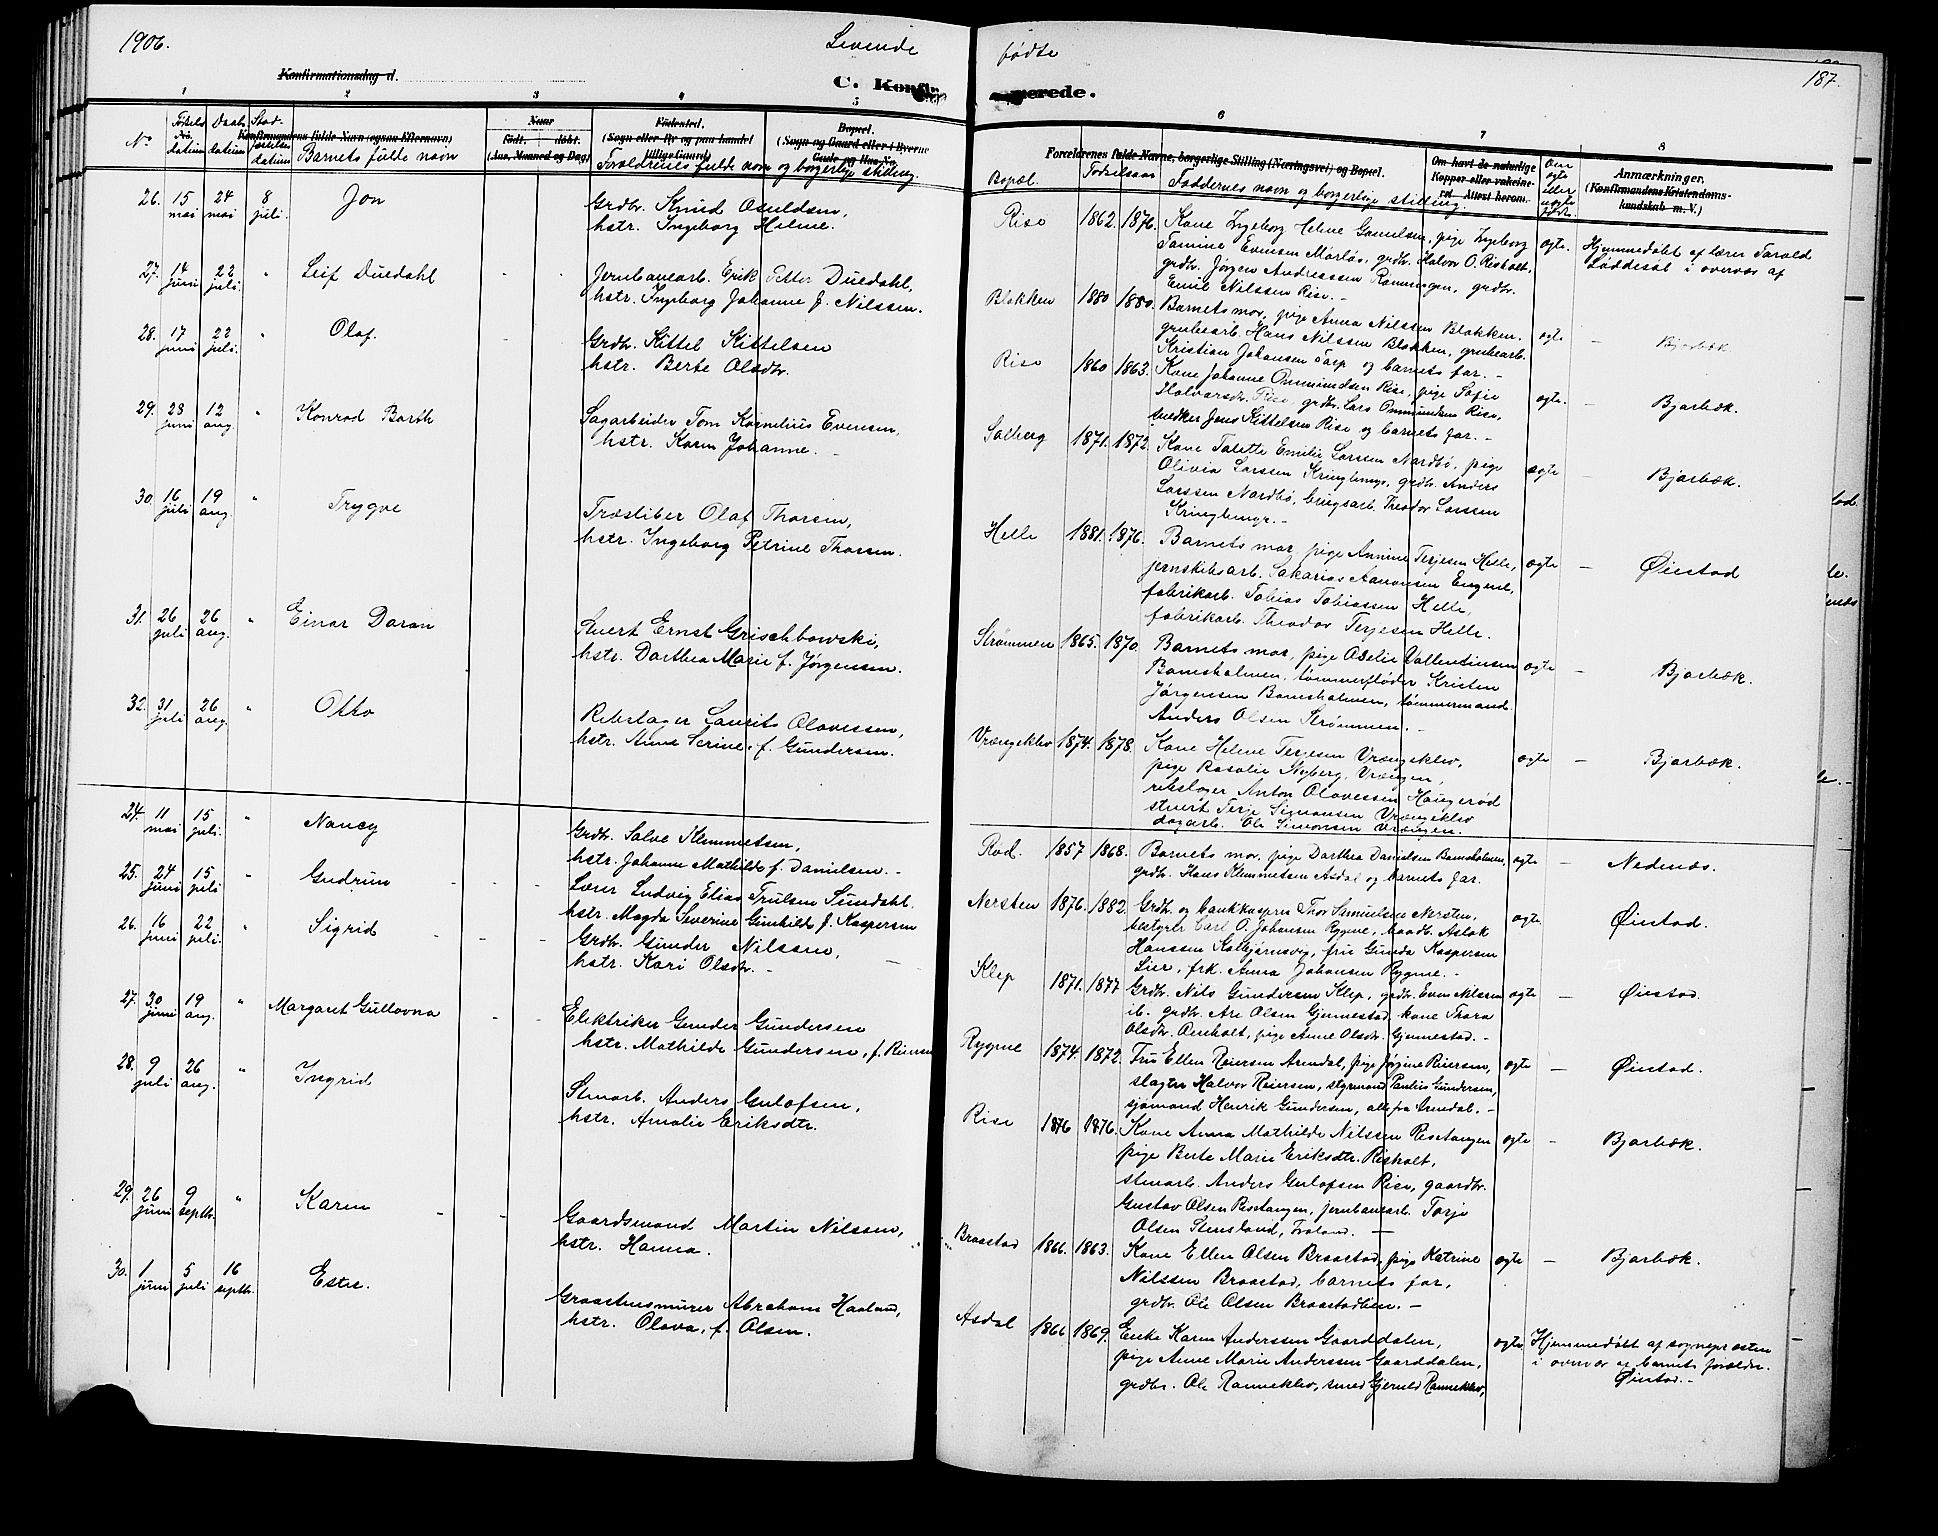 1906.
Levende
fødte
187.
Konfirmationsdag d.
C. Konfir
merede.
1 2 3 4 5 6 7 8
No. Fødsels datum Daabs datum Stad-fæstelses datum
Konfirmandens fulde Navn (ogsaa Efternavn)
Barnets fulde navn
Naar
født. døbt.
(Aar, Maaned og Dag)
Fødested.
(Sogn eller By og paa landet tillige Gaard)
Bopæl.
(Sogn og Gaard eller i Byerne Gade og Hus-No.
Forældrenes fulde navn og borgerlige stilling.
Forældrenes fulde Navne, borgerlige Stilling (Næringsvei) og Bopæl.
Bopæl. Fødselsaar
Faddernes navn og borgerlige stilling.
Om havt de naturlige Kopper eller vakcineret. Attest herom.
Om ægte eller uægte født.
Anmærkninger.
(Konfirmandens Kristendomskundskab m. V.)
26. 15 mai 24 mai 8 juli. Jon
Grdbr. Knud Osuldsen,
hstr. Ingeborg Helene.
Rise 1862. 1876. Kone Ingeborg Helene Gamelsen, pige Ingeborg
Tomine Evensen Mørlås, grdbr. Halvor O. Risholt,
grdbr. Jørgen Andreassen Rønningen, grdbr.
Emil Nilssen Rise. –
ægte. Hjemmedøbt af lærer Tarald
Løddesøl i overvær af
27. 14 juni 22 juli. " Leif Duedahl
Jernbanearb. Erik Petter Duedahl,
hstr. Ingeborg Johanne f. Nilssen.
Blakken 1880 1880. Barnets mor, pige Anna Nilssen Blakken.
grubearb. Hans Nilssen Blakken, grubearb.
Kristian Johansen Torp og barnets far. –
ægte – Bjorbæk
28. 17 juni 22 juli. " Olaf.
Grdbr. Kittel Kittelsen
hstr. Berte Olsdtr.
Rise 1860 1863. Kone Johanne Ommundsen Rise, pige Sofie
Halvorsdtr. Rise, grdbr. Lars Ommundsen Rise,
snedker Jens Kittelsen Rise og barnets far. –
ægte. – Bjorbæk.
29. 23 juni 12 aug. " Konrad Barth
Sagarbeider Tom Kornelius Evensen,
hstr. Karen Johanne. –
Solberg 1871. 1872. Kone Talette Emilie Larssen Nardbø, pige
Olivia Larssen Kringlemyr, grdbr. Anders
Larssen Nardbø, brugsarb. Theodor Larssen
Kringlemyr. –
ægte – Bjorbæk.
30. 16 juli 19 aug. " Trygve
Træsliber Olaf Thorsen,
hstr. Ingeborg Petrine Thorsen.
Helle 1881. 1876. Barnets mor, pige Annine Terjesen Helle,
jernskibsarb. Sakarias Aanonsen Engene,
fabrikarb. Tobias Tobiassen Helle,
fabrikarb. Theodor Terjesen Helle.
ægte – Øiestad
31. 26 juli 26 aug. " Einar Doran
Stuert Ernst Grischbowski,
hstr. Dorthea Marie f. Jørgensen.
Strømmen 1865. 1870. Barnets mor, pige Oselie Vallentinsen
Bomsholmen, tømmerfløder Kristen
Jørgensen Bomsholmen, tømmermand
Anders Olsen Strømmen.
ægte – Bjorbæk.
32. 31 juli 26 aug. " Otto
Rebslager Laurits Olavessen,
hstr. Anne Serine f. Gundersen.
Vrængeklev 1874. 1878. Kone Helene Terjesen Vrængeklev,
pige Rosalie Nyberg, Vrængen,
rebslager Anton Olavessen Haugerød
stuert Terje Simonsen Vrængeklev
dagarb. Ole Simonsen Vrængen.
ægte – Bjorbæk.
24. 11 mai 15 juli. " Nancy
Grdbr. Salve Klemmetsen,
hstr. Johanne Mathilde f. Danielsen. –
Rød. 1857 1868. Barnets mor, pige Dorthea Danielsen Bomsholmen,
grdbr. Hans Klemmetsen Asdal og barnets far.
ægte – Nedenæs.
25. 24 juni 15 juli " Gudrun
Lærer Ludvig Elias Trulsen Sundahl.
hstr. Magda Severine Gunhilde f. Kaspersen
Nersten 1876. 1882. Grdbr. og bankkasserer Thor Samuelsen Nersten,
Carl O. Johansen Rygene, Aslak
Hanssen Kolbjørnsvig, fru Gunda Kaspersen
Lier, frk. Anna Johansen Rygene. –
ægte. – Øiestad.
26. 16 juni 22 juli. " Sigrid
Grdbr. Gunder Nilssen,
hstr. Kari Olsdtr. –
Klep 1871. 1877 Grdbr. Nils Gundersen Klep, grdbr. Even Nilssen
ib. grdbr. Are Olsen Gjennestad, kone Thora
Olsdtr. Omholt, pige Anne Olsdtr. Gjennestad. –
ægte – Øiestad.
27. 30 juni 19 aug. " Margaret Gullovna
Elektriker Gunder Gundersen
hstr. Mathilde Gundersen, f. Reiersen
Rygene 1874. 1872. Fru Ellen Reiersen Arendal, pige Jørgine Reiersen,
slagter Halvor Reiersen, styrmand Paulius Gundersen,
sjømand Henrik Gundersen, alle fra Arendal. –
ægte – Øiestad.
28. 9 juli 26 aug. " Ingrid
Stenarb. Anders Gulofsen,
hstr. Amalie Eriksdtr.
Rise 1876 1876. Kone Anna Mathilde Nilssen Risetangen
pige Berte Marie Eriksdtr. Risholt,
stenarb. Anders Gulofsen Rise, gaardbr.
Gustav Olsen Risetangen, jernbanearb. Torje
Olsen Stensland, Froland. –
ægte – Bjorbæk.
29. 26 juni 9 septbr. " Karen
Gaardsmand Martin Nilssen,
hstr. Hanna.
Braastad 1866. 1863. Kone Ellen Olsen Braastad, pige Katrine
Nilssen Braastad, barnets far,
grdbr. Ole Olsen Braastadlien. –
ægte – Bjorbæk.
30. 1 juni 5 juli 16 septbr. Ester.
Graastensmurer Abraham Haaland,
hstr. Olava, f. Olsen.
Asdal 1866 1869. Enke Karen Anderssen Gaarddalen,
pige Anne Marie Anderssen Gaarddalen,
grdbr. Ole Ranneklev, smed Gjeruld Ranneklev,
ægte Hjemmedøbt af sognepresten
i overvær af barnets forældre.
Øiestad. –